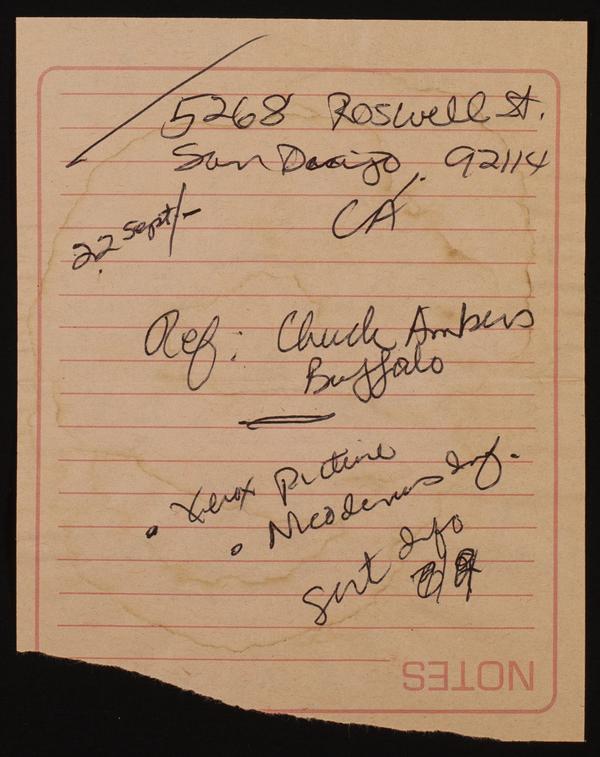 5268 Roswell St.
San Deaigo. 92114
CA
22 Sept/-
Ref: Chuck Ambers
Buffalo
• Xerox Picture
• Nicodemus Inf.
Sent Info
NOTES